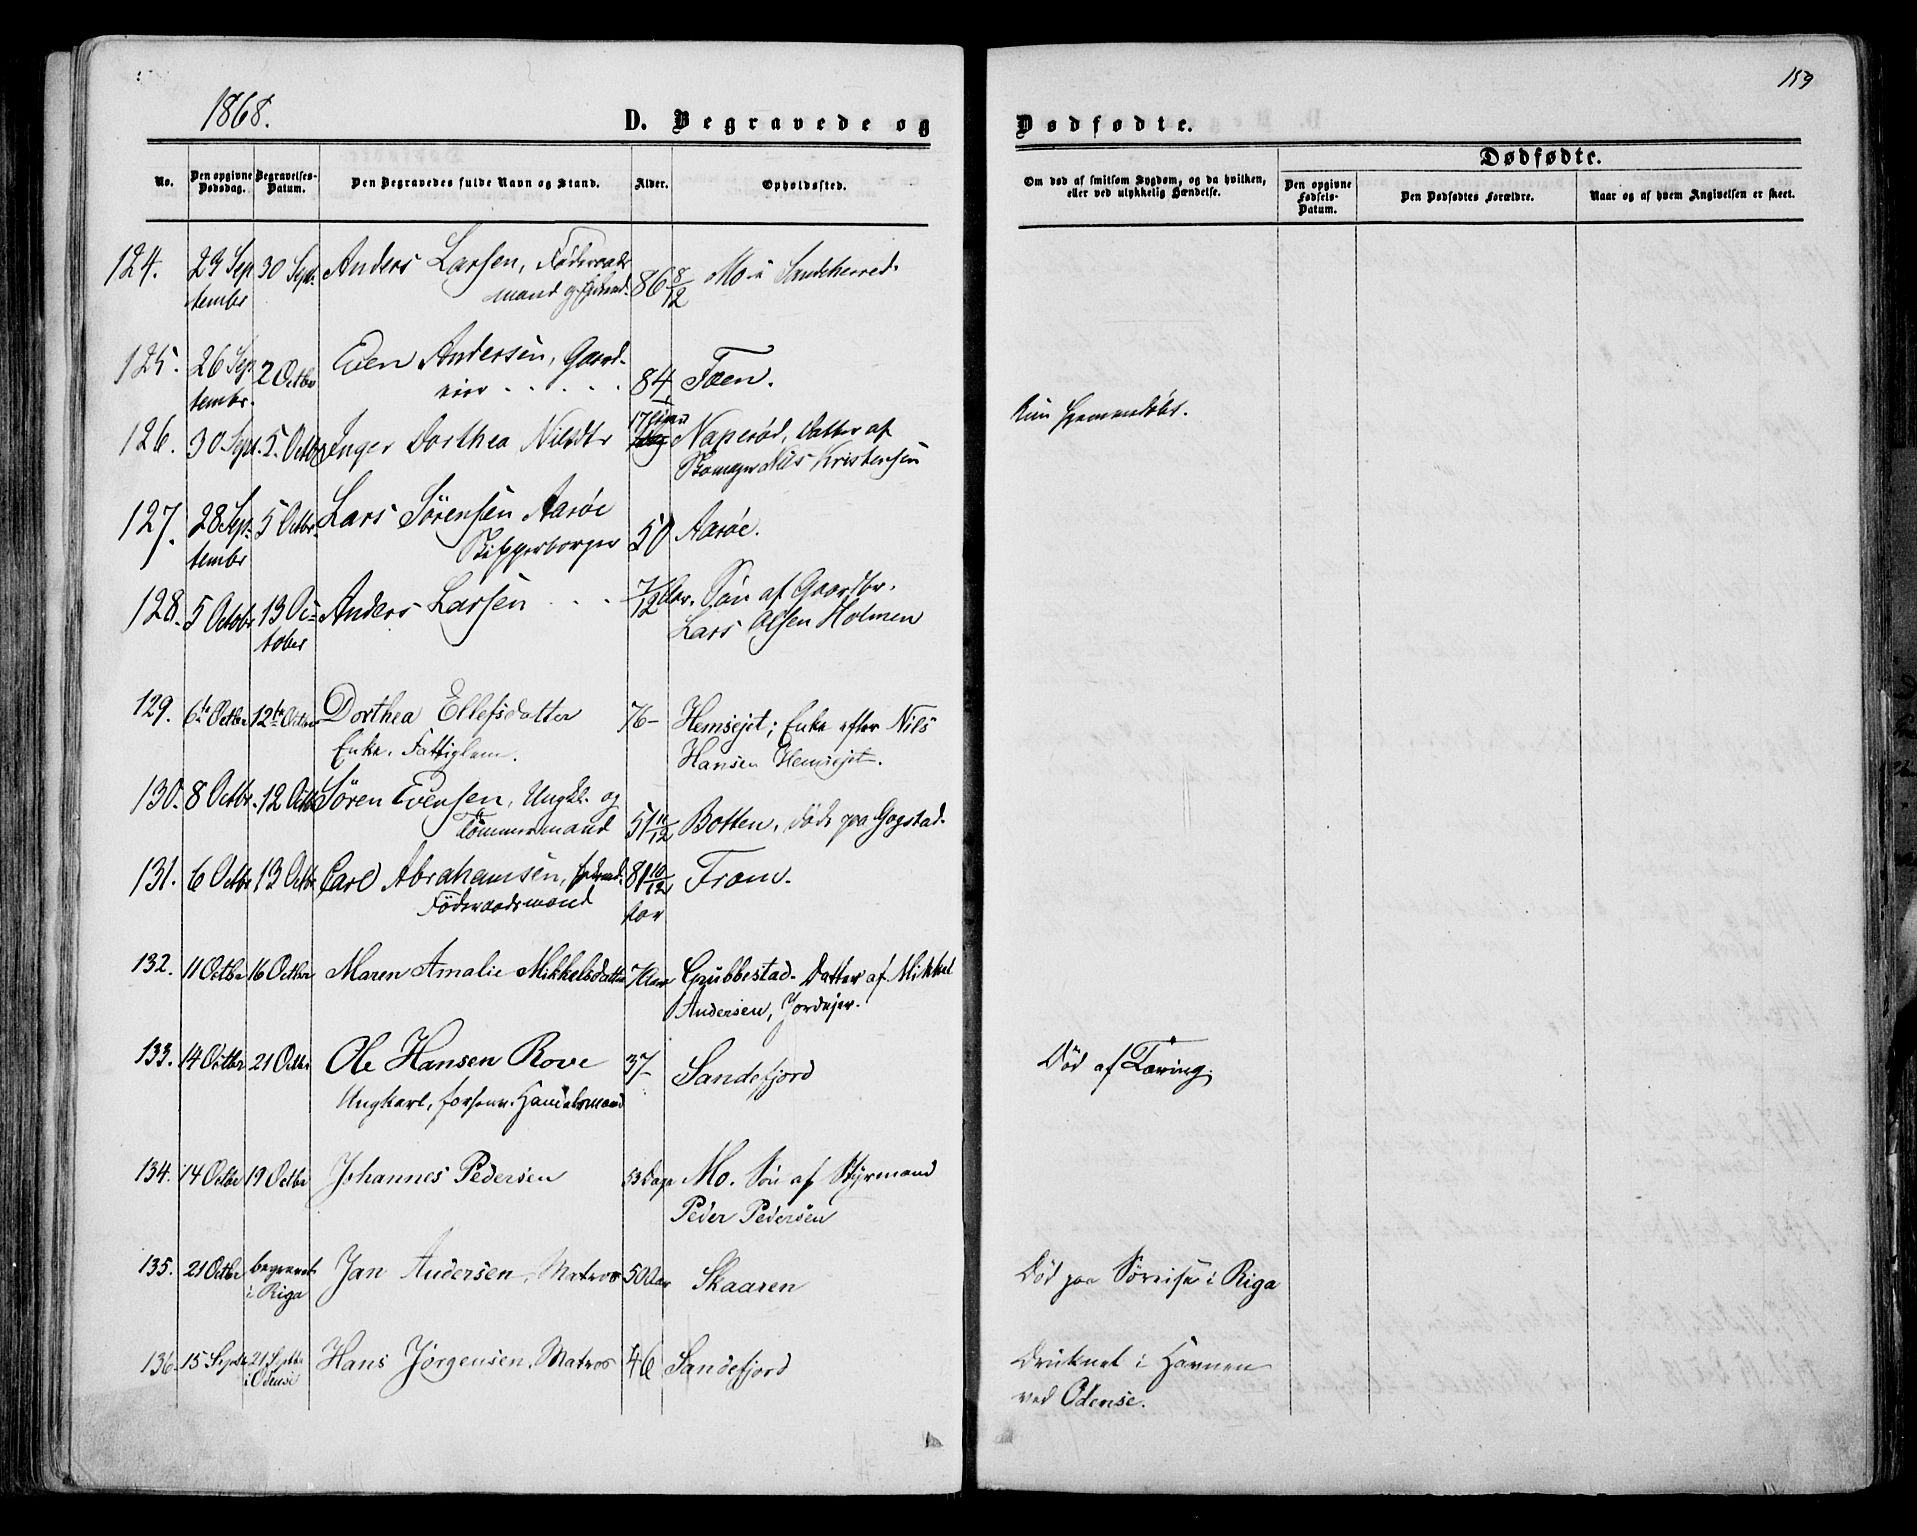 1868.
D. Begravede og
No.
Den opgivne Dødsdag.
Begravelses-Datum.
Den Begravedes fulde Navn og Stand.
Alder.
Opholdssted.
124. 29 Sep 30 Sept. Anders Larsen, Føderaads
tembr mand 86 8/12 Mo i Sandeherred.
125. 26 Sep 2 Octbr Even Andersen, Gaard-
tembr. eier . . . . . 84 Foen.
126. 30 Sept. 5. Octbr Inger Dorthea Nilsdtr 17 Napersød, Datter af
Skomager Nils Kristensen
127. 28 Sep- 5 Octbr. Lars Sørensen Aarøe
tembr Skipperborger 50 Aarøe.
128. 5 Octobr 13 Oc- Anders Larsen . . . 7/12 Aar. Søn af Gaardbr.
tober Lars Olsen Holmen
129. 6te Octbr 12te Octbr Dorthea Ellefsdatter 76 – Hemsejet; Enke efter Nils
Enke. Fattiglem. Hansen Hemsejet.
130. 8 Octbr. 12 Octb Søren Evensen, Ungkl. og
Tømmermand 51 11/12 Botten, død paa Gogstad.
131. 6 Octbr 13 Octbr Carl Abrahamsen, 81 10/12 Fram.
Føderaadsmand Aar
132. 11 Octbr 16 Octbr Maren Amalie Mikkelsdatter 7 Aar Grubbestad. Datter af Mikkel
Andersen, Jordejer.
133. 14 Octbr 21 Octbr Ole Hansen Rove 37 – Sandefjord
Ungkarl, forhenv. Handelsmand
134. 14 Octbr 19 Octbr Johannes Pedersen 53 Dage Mo. Søn af Styrmand
Peder Pedersen
135. 21 Octbr begravet Jan Andersen, Matros 50 Aar Skaaren
i Riga
136. 15 Septb 21 Septbr Hans Jørgensen, Matros 46 Sandefjord
i Odense
159
Dødfødte.
Dødfødte.
Om død af smitsom Sygdom, og da hvilken,
eller ved ulykkelig Hændelse.
Den opgivne Fødsels-Datum.
Den Dødfødtes Forældre.
Naar og af hvem Angivelsen er skeet.
Kun hjemmedøbt.
Død af Tæring.
Død paa Søreise i Riga
Druknet i Havnen
ved Odense.